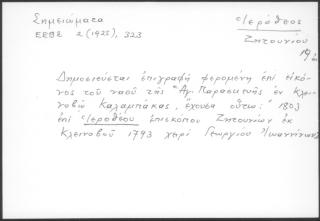 Σημειώματα
ΕΕΒΣ 2 (1925), 323
Ἱερόθεος
Ζητουνίου
Δημοσιεύεται ἐπιγραφή φερομένη ἐπί εἰκό-
νος τοῦ ναοῦ τῆς "Ἁγ. Παρασκευῆς ἐν Κλει-
νοβῷ Καλαμπάκας, ἔχουσα οὕτω: " 1803
ἐπί Ἱεροθέου ἐπισκόπου Ζητουνίων ἐκ
Κλεινοβοῦ 1793 χειρί Γεωργίου Ἰωαννίνων